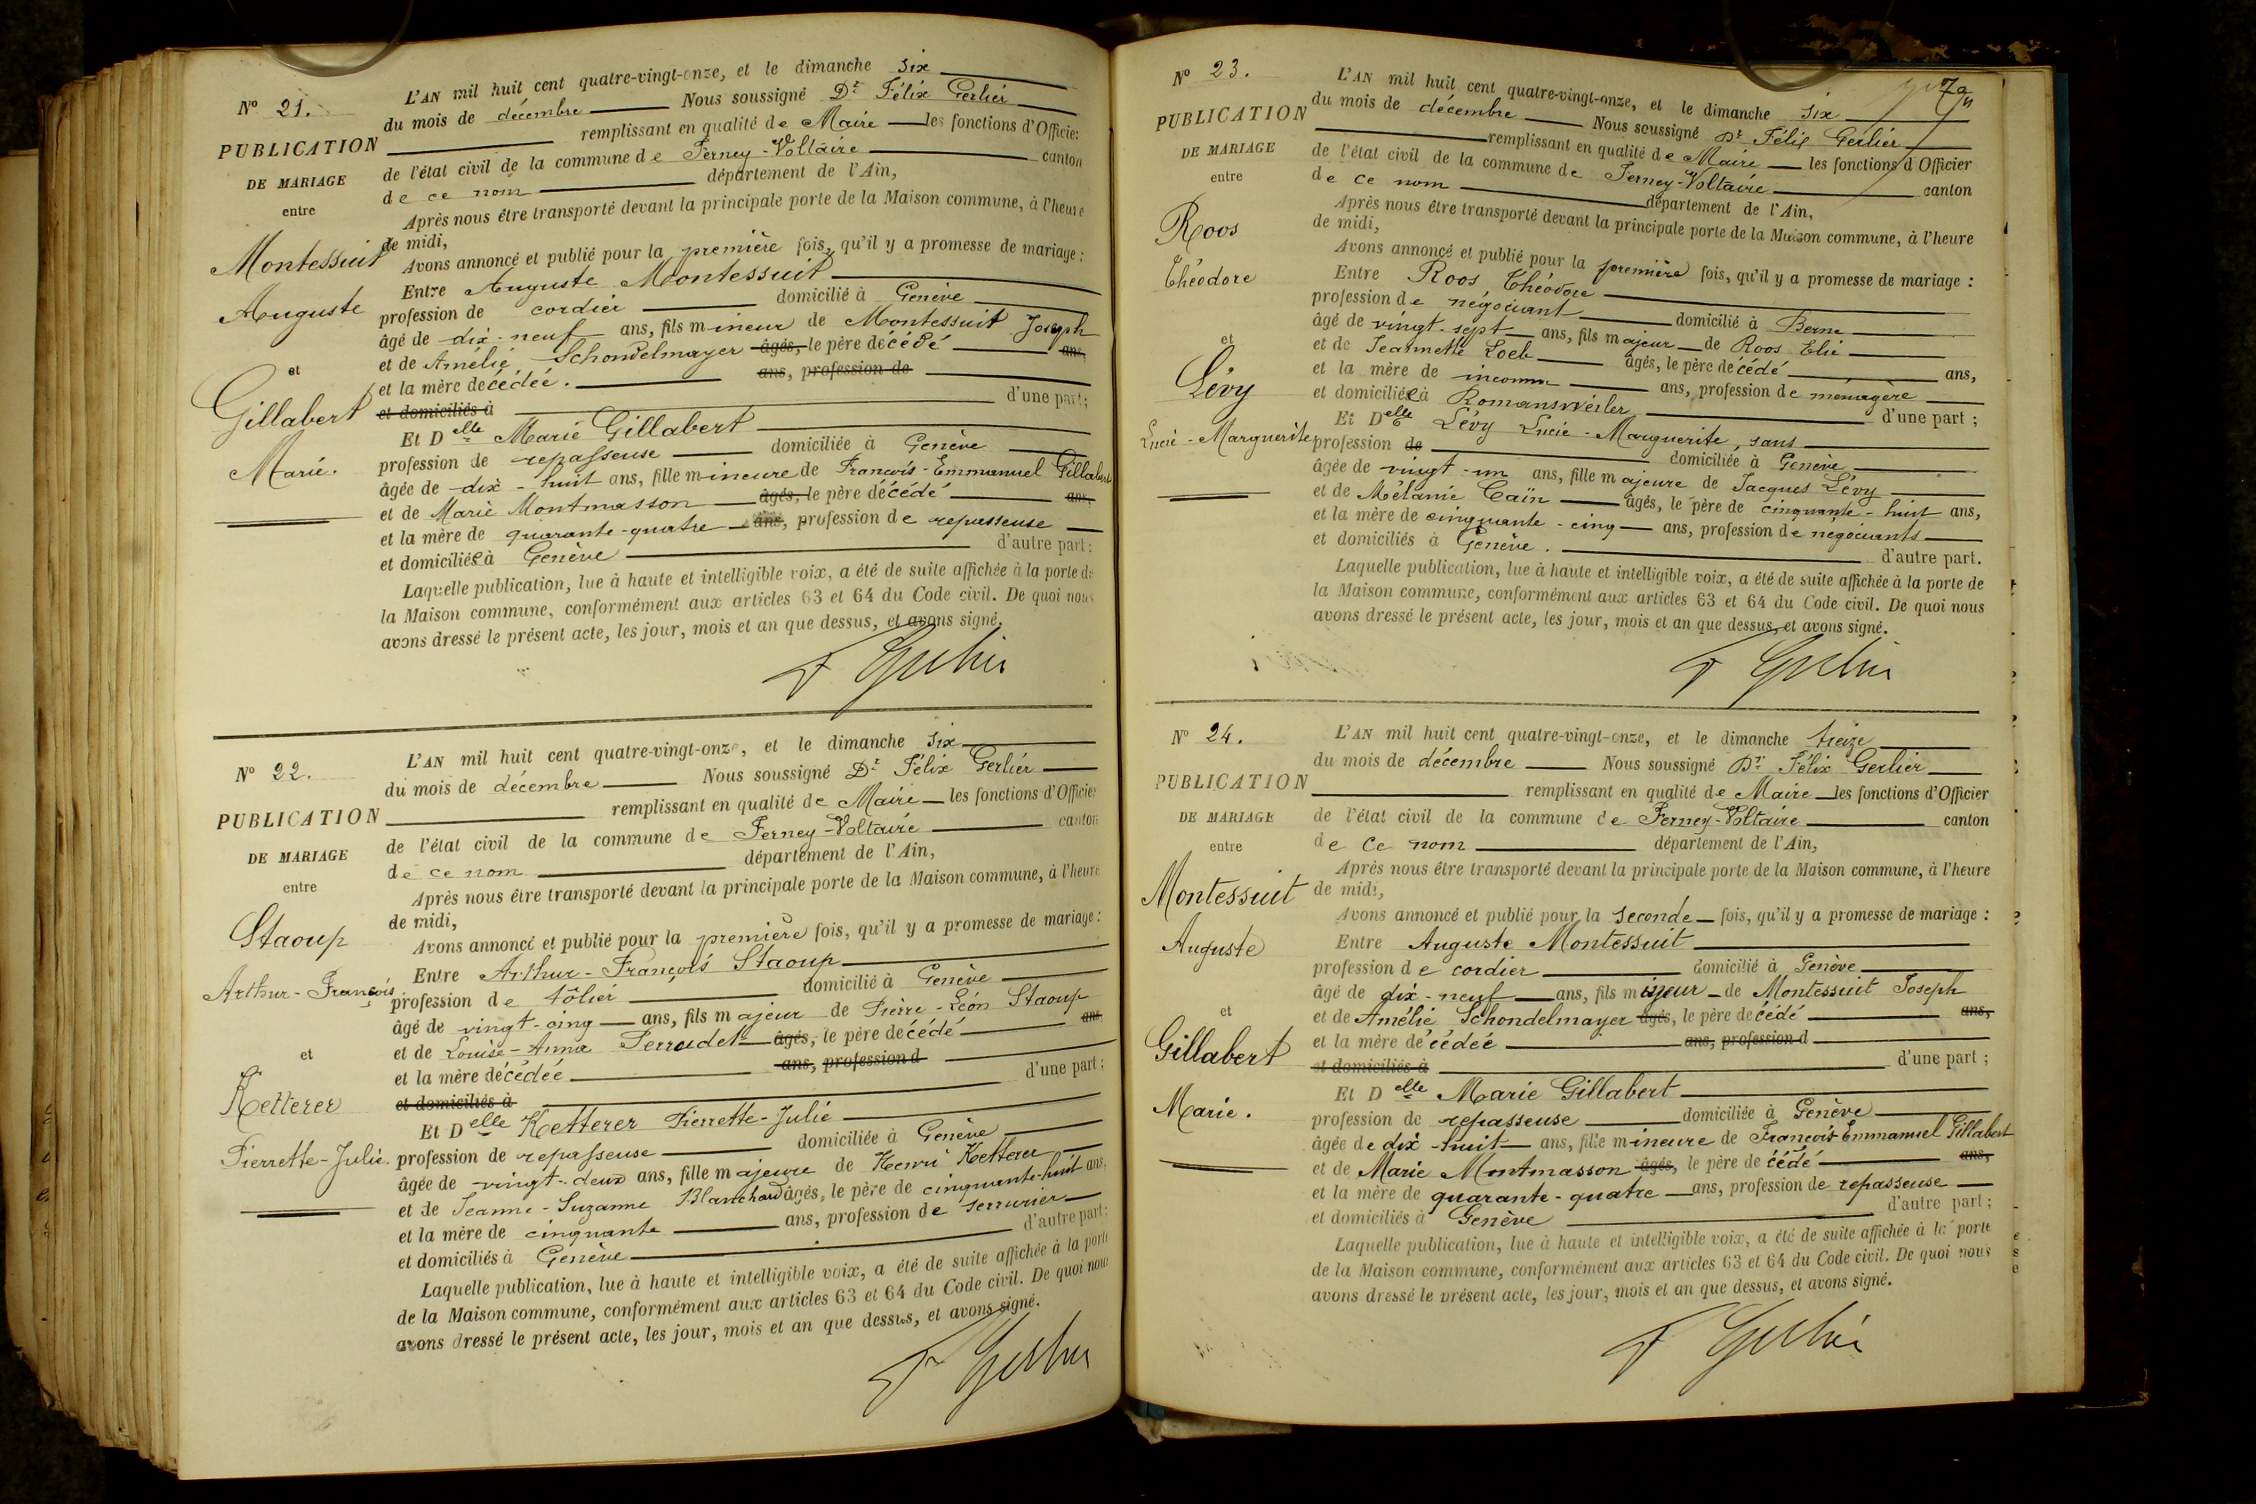 N° 21.
PUBLICATION
DE MARIAGE
entre
Montessuit
Auguste
et
Gillabert
Marie.
L'AN mil huit cent quatre-vingt-onze, et le dimanche six
du mois de décembre Nous soussigné Dr Félix Gerlier
remplissant en qualité de Maire les fonctions d'Officier
de l'état civil de la commune de Ferney-Voltaire canton
de ce nom département de l'Ain,
Après nous être transporté devant la principale porte de la Maison commune, à l'heure
de midi,
Avons annoncé et publié pour la première fois, qu'il y a promesse de mariage :
Entre Auguste Montessuit
profession de cordier domicilié à Genève
âgé de dix-neuf ans, fils mineur de Montessuit Joseph
et de Amélie Schondelmayer âgés, le père décédé ans,
et la mère décédée. ans, profession de
et domiciliés à d'une part ;
Et Delle Marie Gillabert
profession de repasseuse domiciliée à Genève
âgée de dix-huit ans, fille mineure de François-Emmanuel Gillabert
et de Marie Montmasson âgés, le père décédé ans,
et la mère de quarante-quatre ans, profession de repasseuse
et domiciliée à Genève d'autre part :
Laquelle publication, lue à haute et intelligible voix, a été de suite affichée à la porte de
la Maison commune, conformément aux articles 63 et 64 du Code civil. De quoi nous
avons dressé le présent acte, les jour, mois et an que dessus, et avons signé.
F Gerlier
N° 22.
PUBLICATION
DE MARIAGE
entre
Staoup
Arthur-François
et
Ketterer
Pierrette-Julie.
L'AN mil huit cent quatre-vingt-onze, et le dimanche six
du mois de décembre Nous soussigné Dr Félix Gerlier
remplissant en qualité de Maire les fonctions d'Officier
de l'état civil de la commune de Ferney-Voltaire canton
de ce nom département de l'Ain,
Après nous être transporté devant la principale porte de la Maison commune, à l'heure
de midi,
Avons annoncé et publié pour la première fois, qu'il y a promesse de mariage :
Entre Arthur-François Staoup
profession de tôlier domicilié à Genève
âgé de vingt-cinq ans, fils majeur de Pierre-Léon Staoup
et de Louise-Anna Perrudet âgés, le père décédé ans,
et la mère décédée ans, profession d
et domiciliés à d'une part ;
Et Delle Ketterer Pierrette-Julie
profession de repasseuse domiciliée à Genève
âgée de vingt-deux ans, fille majeure de Henri Ketterer
et de Jeanne-Suzanne Blanchard âgés, le père de cinquante-huit ans,
et la mère de cinquante ans, profession de serrurier
et domiciliés à Genève d'autre part :
Laquelle publication, lue à haute et intelligible voix, a été de suite affichée à la porte
de la Maison commune, conformément aux articles 63 et 64 du Code civil. De quoi nous
avons dressé le présent acte, les jour, mois et an que dessus, et avons signé.
F Gerlier
N° 23.
PUBLICATION
DE MARIAGE
entre
Roos
Théodore
et
Lévy
Lucie-Marguerite
L'AN mil huit cent quatre-vingt-onze, et le dimanche six
du mois de décembre Nous soussigné Dr Félix Gerlier
remplissant en qualité de Maire les fonctions d'Officier
de l'état civil de la commune de Ferney-Voltaire canton
de ce nom département de l'Ain,
Après nous être transporté devant la principale porte de la Maison commune, à l'heure
de midi,
Avons annoncé et publié pour la première fois, qu'il y a promesse de mariage :
Entre Roos Théodore
profession de négociant domicilié à Berne
âgé de vingt-sept ans, fils majeur de Roos Elie
et de Jeannette Loeb âgés, le père décédé ans,
et la mère de inconnu ans, profession de ménagère
et domiciliée à Romansweiler d'une part ;
Et Delle Lévy Lucie-Marguerite, sans
profession de domiciliée à Genève
âgée de vingt-un ans, fille majeure de Jacques Lévy
et de Mélanie Caïn âgés, le père de cinquante-huit ans,
et la mère de cinquante-cinq ans, profession de négociants
et domiciliés à Genève. d'autre part.
Laquelle publication, lue à haute et intelligible voix, a été de suite affichée à la porte de
la Maison commune, conformément aux articles 63 et 64 du Code civil. De quoi nous
avons dressé le présent acte, les jour, mois et an que dessus, et avons signé.
F Gerlier
N° 24.
PUBLICATION
DE MARIAGE
entre
Montessuit
Auguste
et
Gillabert
Marie.
L'AN mil huit cent quatre-vingt-onze, et le dimanche treize
du mois de décembre Nous soussigné Dr Félix Gerlier
remplissant en qualité de Maire les fonctions d'Officier
de l'état civil de la commune de Ferney-Voltaire canton
de ce nom département de l'Ain,
Après nous être transporté devant la principale porte de la Maison commune, à l'heure
de midi,
Avons annoncé et publié pour la seconde fois, qu'il y a promesse de mariage :
Entre Auguste Montessuit
profession de cordier domicilié à Genève
âgé de dix-neuf ans, fils mineur de Montessuit Joseph
et de Amélie Schondelmayer âgés, le père décédé ans,
et la mère décédée ans, profession d
et domiciliés à d'une part ;
Et Delle Marie Gillabert
profession de repasseuse domiciliée à Genève
âgée de dix-huit ans, fille mineure de François-Emmanuel Gillabert
et de Marie Montmasson âgés, le père décédé ans,
et la mère de quarante-quatre ans, profession de repasseuse
et domiciliés à Genève d'autre part ;
Laquelle publication, lue à haute et intelligible voix, a été de suite affichée à la porte
de la Maison commune, conformément aux articles 63 et 64 du Code civil. De quoi nous
avons dressé le présent acte, les jour, mois et an que dessus, et avons signé.
F Gerlier